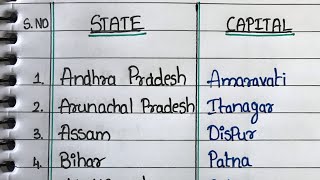 S.NO STATE CAPITAL
1. Andhra Pradesh Amaravati
2. Arunachal Pradesh Itanagar
3. Assam Dispur
4. Bihar Patna